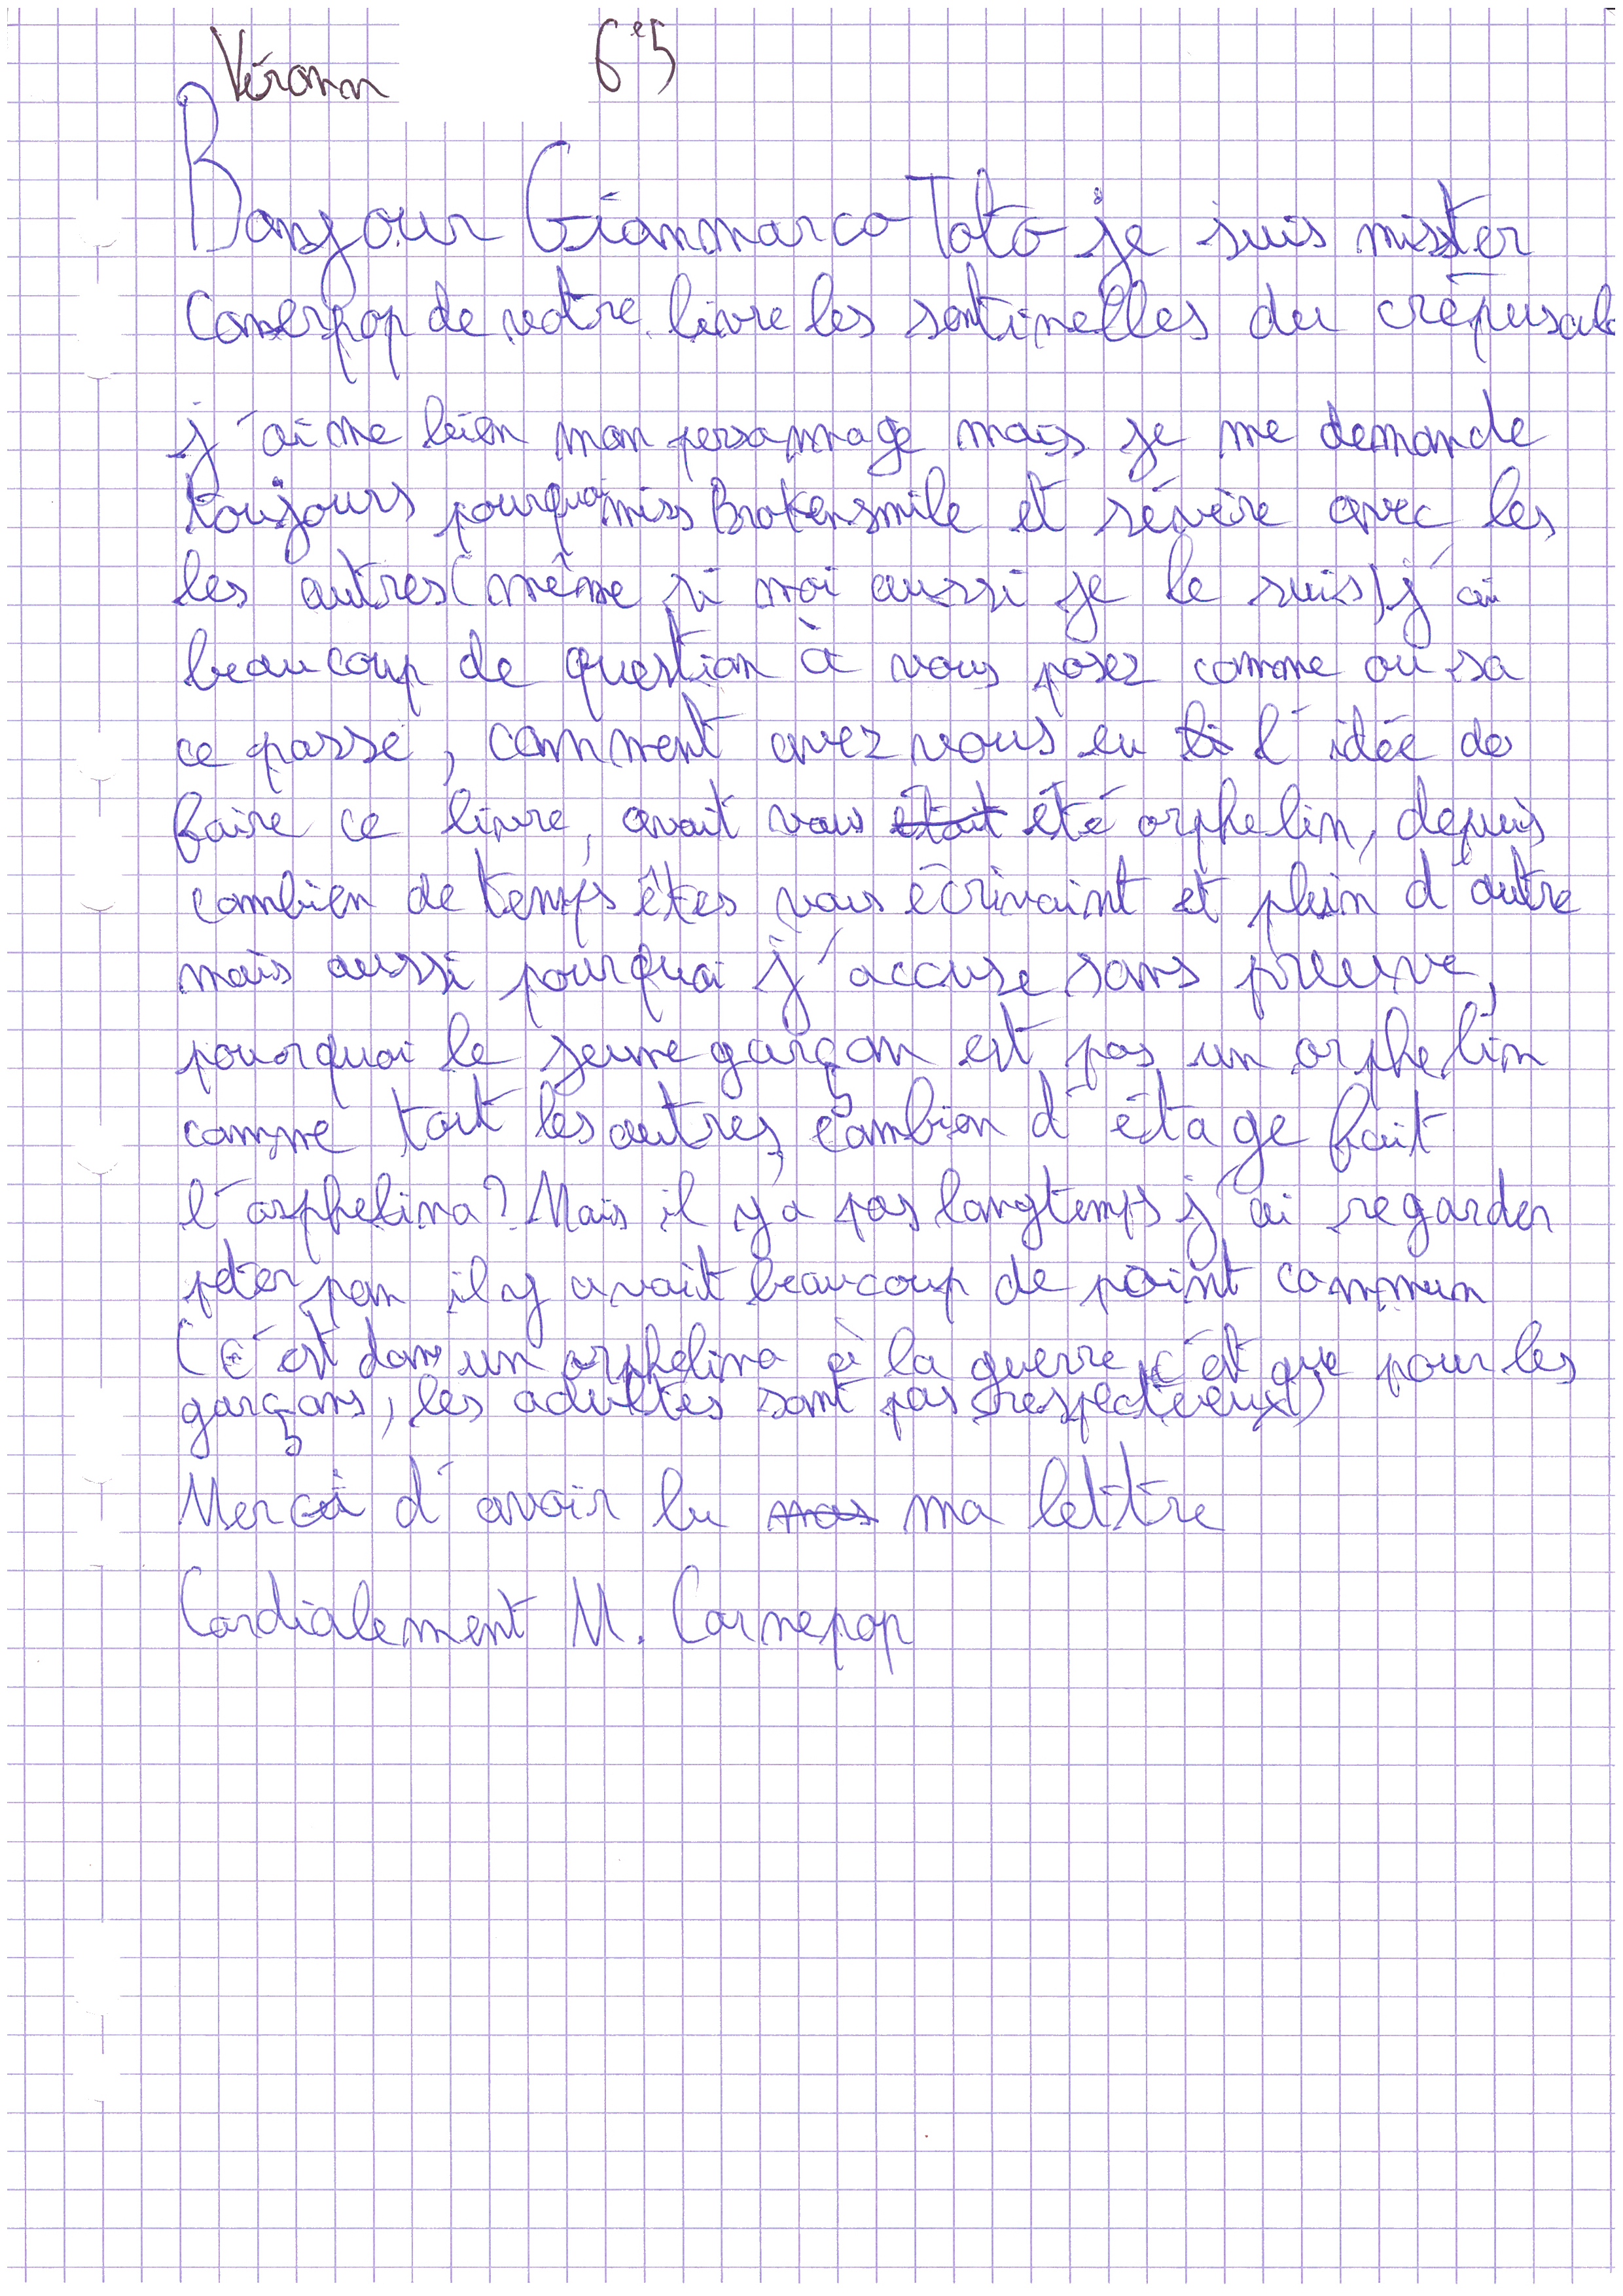 Vérann 6e5
Bonjour Gianmarco Toto je suis mister
Canerpop de votre livre les sentinelles du crépuscule
j'aime bien mon personnage mais je me demande
toujours pourquoi miss Brokensmile et sévère avec les
les autres (même si moi aussi je le suis) j'ai
beaucoup de question à vous posez comme ou sa
ce passe, comment avez vous eu l'idée de
faire ce livre, avait vous était été orphelin, depuis
combien de temps êtes vous écrivaint et plein d'autre
mais aussi pourquoi j'accuse sans preuve,
pourquoi le jeune garçon est pas un orphelin
comme tout les autres, combien d'étage fait
l'orphelina? Mais il y a pas longtemps j'ai regarder
peter pan il y avait beaucoup de point commun
(c'est dans un orphelina à la guerre, c'est que pour les
garçons, les adultes sont pas respectueux)
Merci d'avoir lu mas ma lettre
Cordialement M. Carnepop